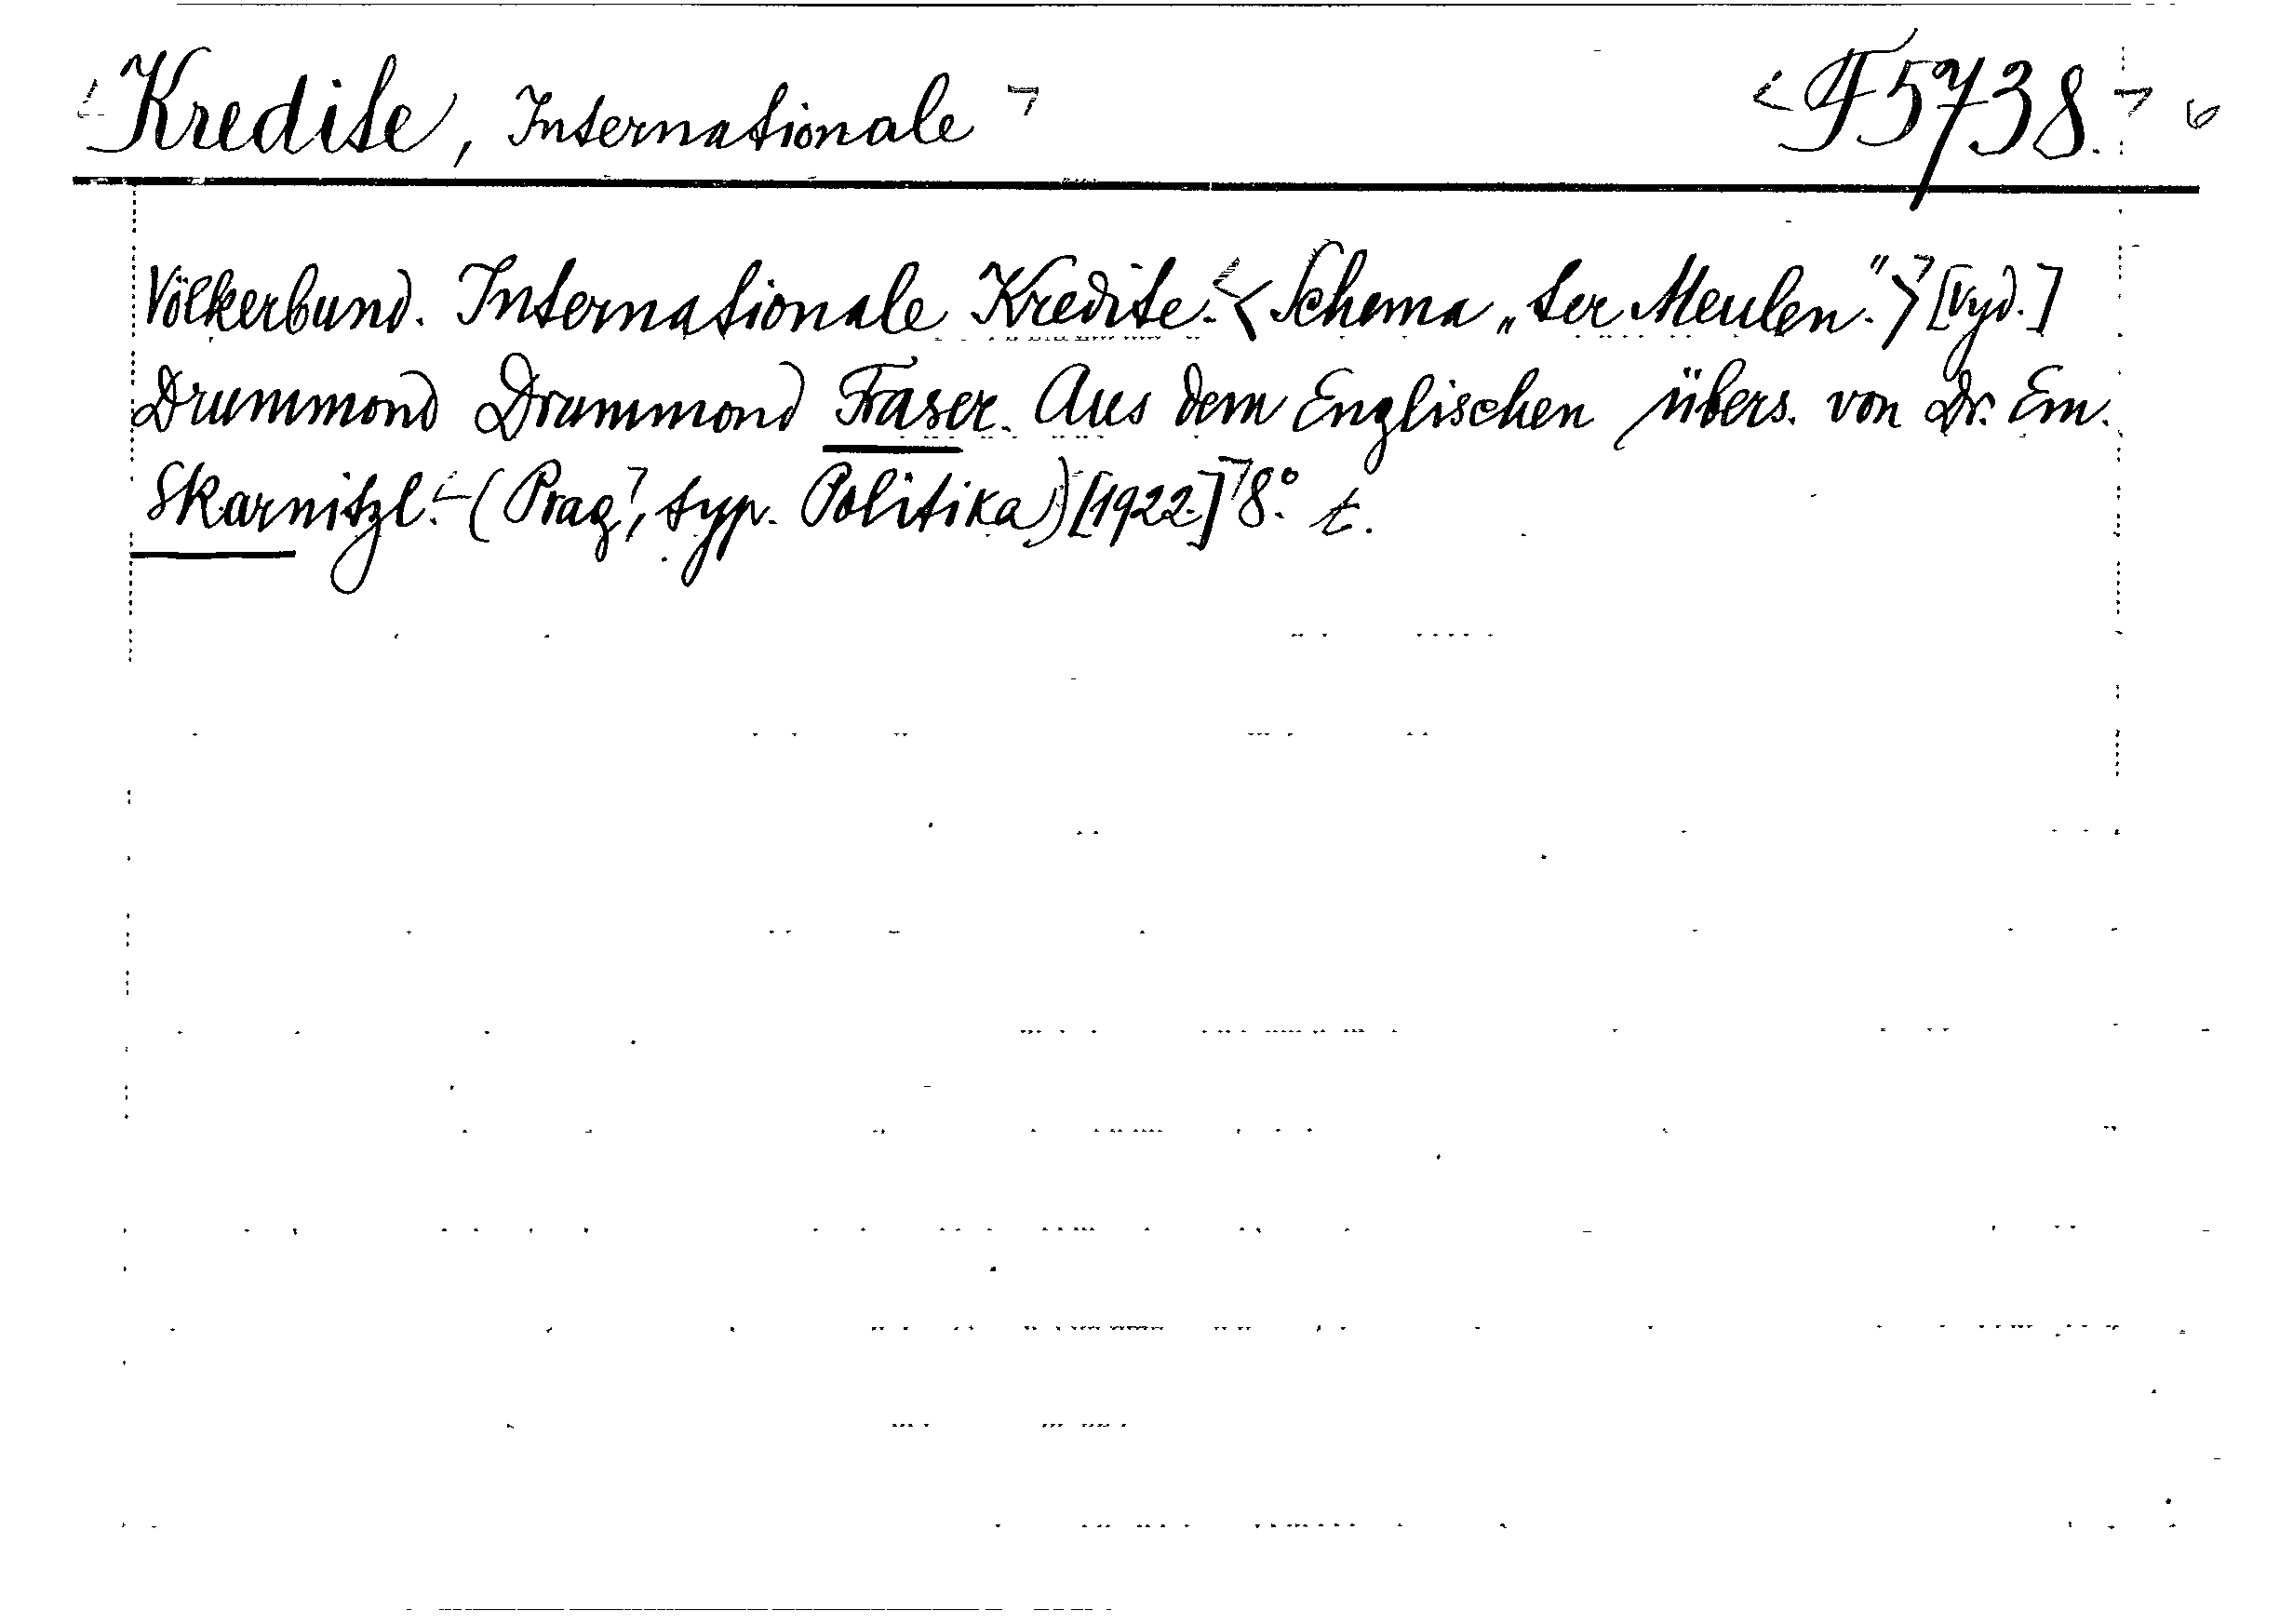 Kredite, Internationale
F 5738.
Völkerbund. Internationale Kredite.-<Schema „ter Meulen.”> [Vyd.]
Drummond Drummond Fraser. Aus dem Englischen übers. von Dr. Em.
Skarnitzl.-(Prag, typ. Politika) [1922.] 8° t.